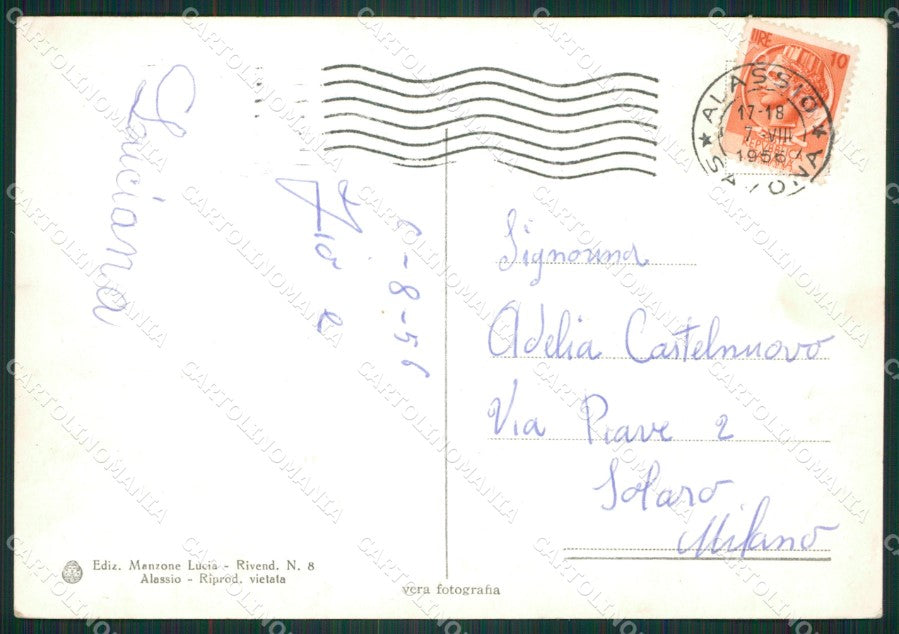 6-8-56
Zio e
Luciana
LIRE 10
ALASSIO
17-18
7-VIII
1956
SAVONA
Signorina
Adelia Castelnuovo
Via Piave 2
Solaro
Milano
Ediz. Manzone Lucia - Rivend. N. 8
Alassio - Riprod. vietata
vera fotografia
CARTOLINOMANIA